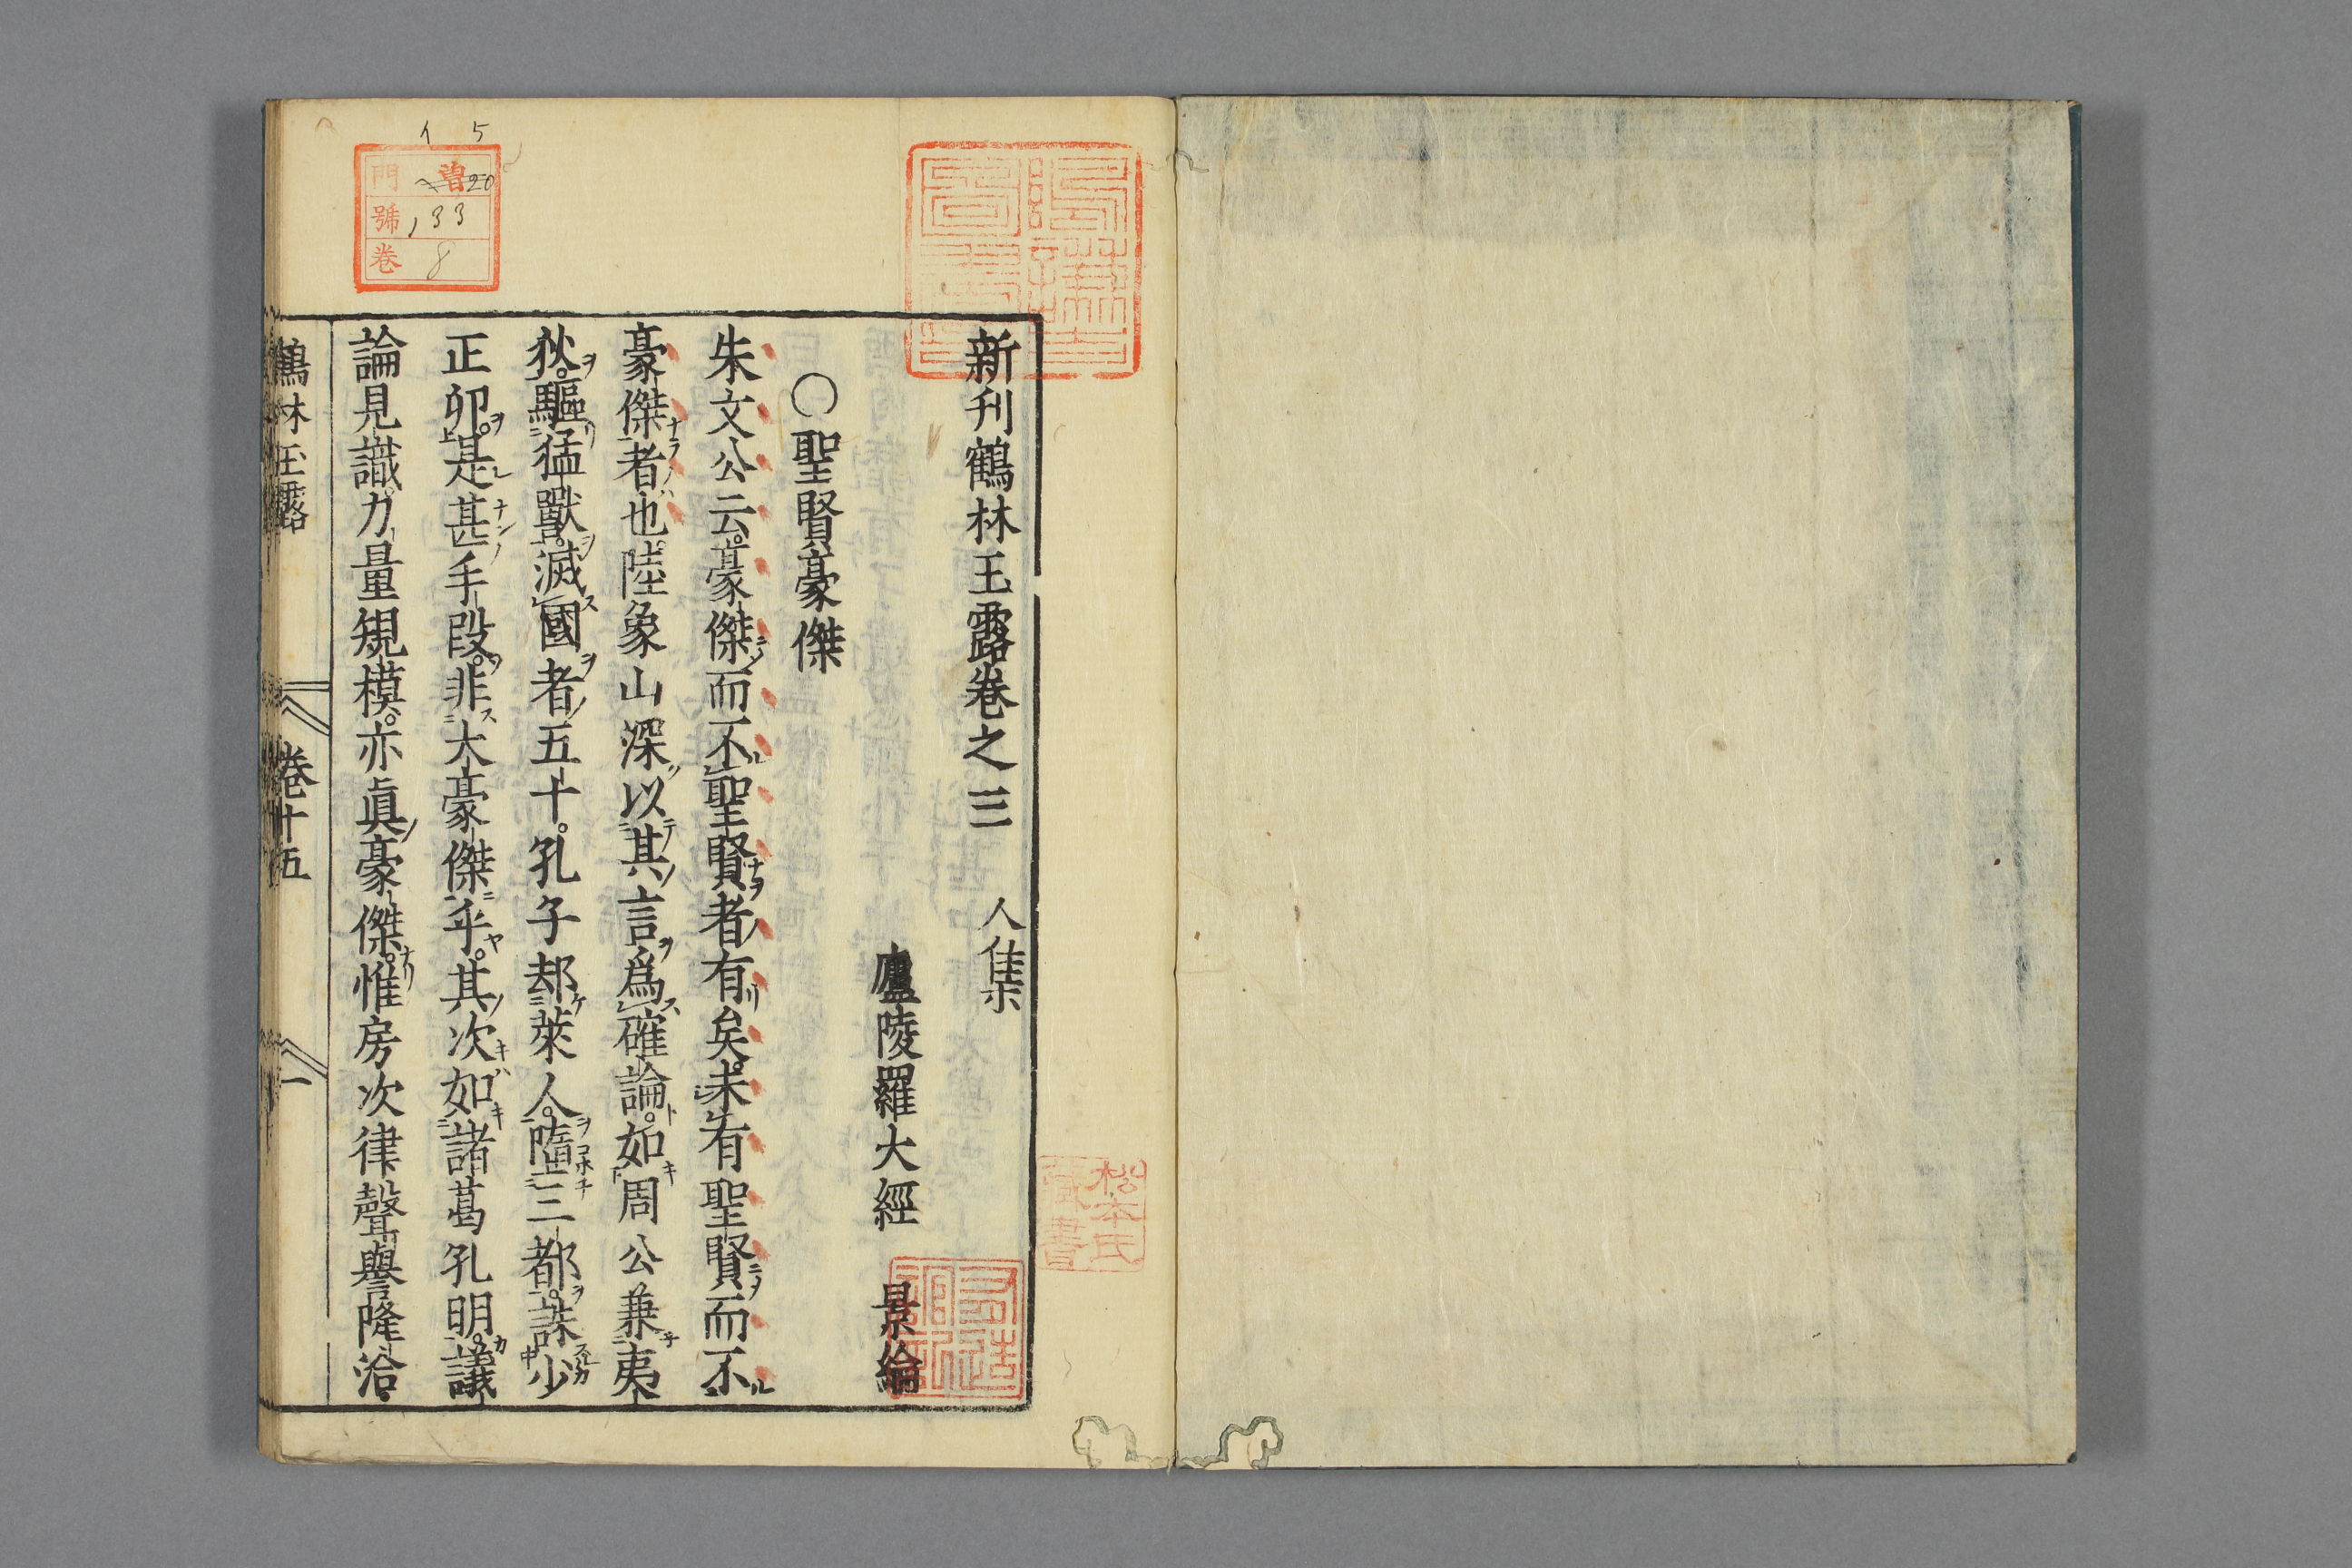 新刊鶴林玉露卷之三 人集
廬陵羅大經 景綸
○聖賢豪傑
朱文公云豪傑而不聖賢者有矣未有聖賢而不
豪傑者也陸象山深以其言爲確論如周公兼夷
狄驅猛獸滅國者五十孔子却萊人隳三都誅少
正卯是甚手段非大豪傑乎其次如諸葛孔明議
論見識力量規模亦眞豪傑惟房次律聲譽隆洽
鶴林玉露 卷十五 一
イ 5
門 20
號 133
卷 8
松本氏
藏書